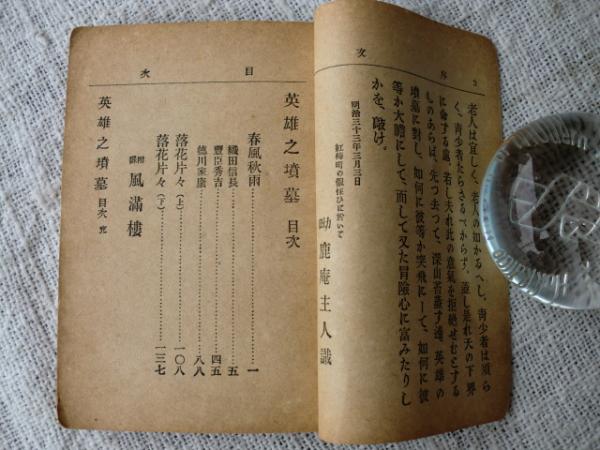 序文
2
老人は宜しく、老人の如かるへし、靑少者は須ら
く、靑少者たらさるべからず、蓋し是れ天の下界
に命する處、若し夫れ此の意氣を拒絶せむとする
ものあらば、先つ去つて、深山苔蒸す邊、英雄の
墳墓に對し、如何に彼等か突飛にして、如何に彼
等か大膽にして、而して又た冒險心に富みたりし
かを、敲け。
明治三十三年三月三日
紅梅町の假住ひに於いて
幼鹿庵主人識
目次
英雄之墳墓 目次
春風秋雨 一
織田信長 五
豐臣秀吉 四五
德川家康 八八
落花片々(上) 一〇八
落花片々(下) 一三七
附錄 風滿樓
英雄之墳墓 目次 完